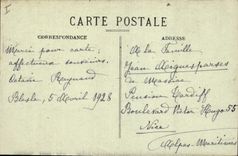 I
CARTE POSTALE
CORRESPONDANCE
ADRESSE
Merci pour carte;
affectueux souvenirs.
Raynaud
Blesle, 5 Avril 1928
A la famille
Jean Aigueparses
du
Pension Cardiff
Boulevard Victor Hugo 55
Nice
Alpes-Maritimes